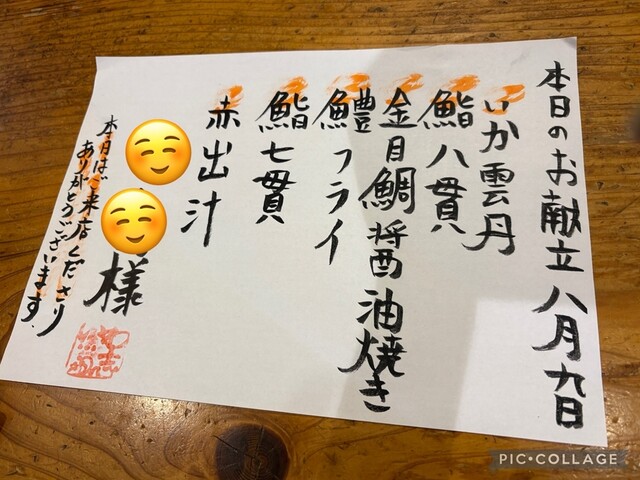 本日のお献立 八月九日
いか雲丹
鮨八貫
金目鯛醤油焼き
鱧フライ
鮨七貫
赤出汁
様
本日はご来店くださり
ありがとうございます.
PIC•COLLAGE